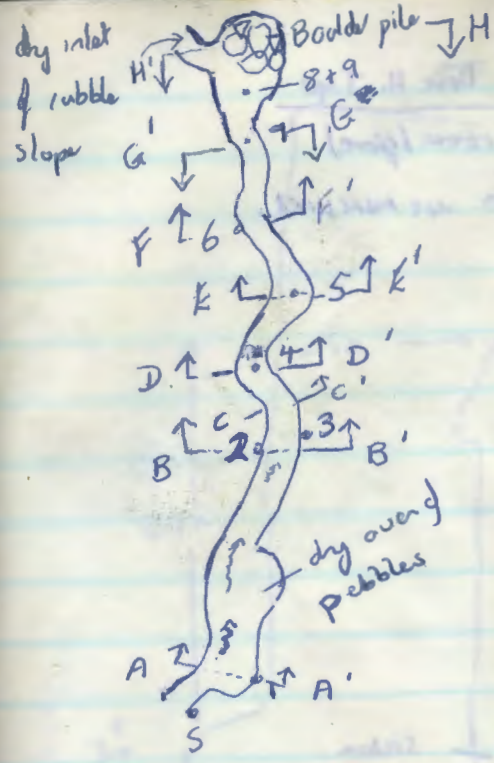 dry inlet
of rubble
slope
Boulder pile
H
H'
8+9
G
G'
F'
F
6
E
5
E'
4
D'
D
C'
C
3
B
2
B'
dry over of
pebbles
A
A'
S